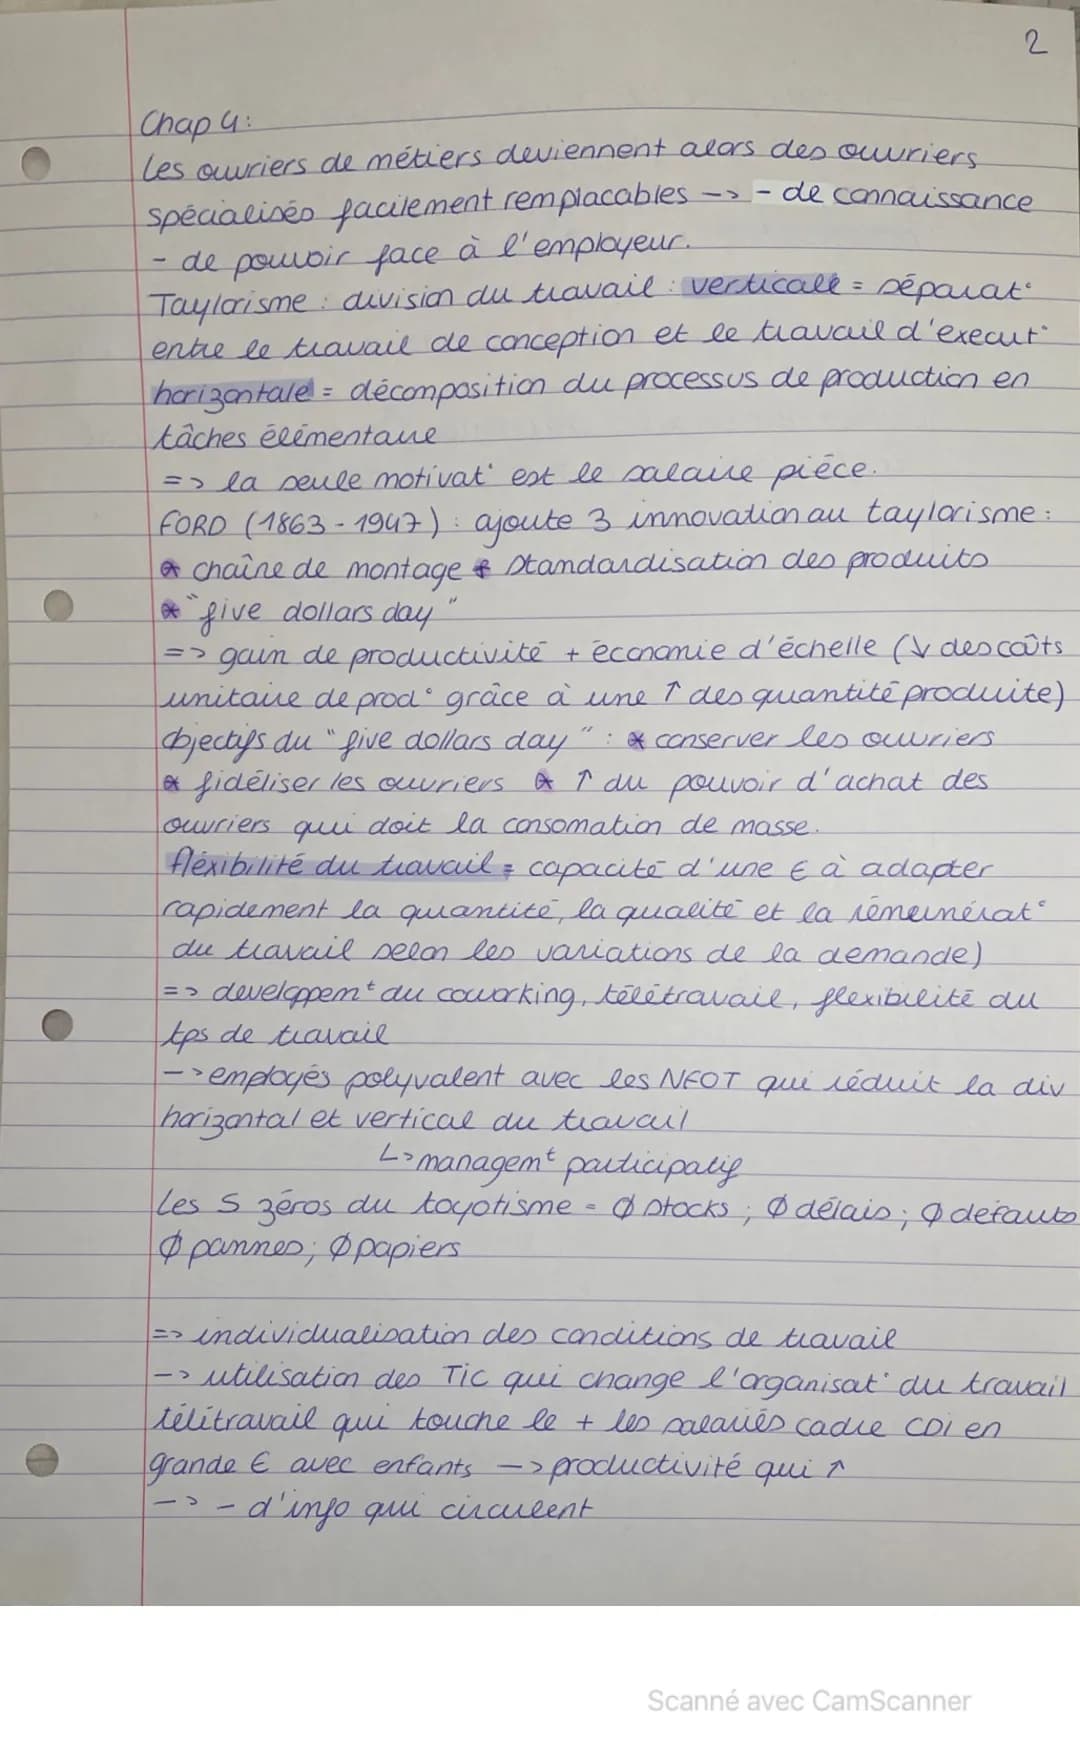 2
Chap 4:
Les ouvriers de métiers deviennent alors des ouvriers
spécialisés facilement remplacables -> - de connaissance
- de pouvoir face à l'employeur.
Taylorisme : division du travail : verticale = séparat°
entre le travail de conception et le travail d'execut°
horizontale = décomposition du processus de production en
tâches élémentaire
=> la seule motivat° est le salaire pièce.
FORD (1863 - 1947) : ajoute 3 innovation au taylorisme :
* chaîne de montage * Standardisation des produits
* "five dollars day"
=> gain de productivité + économie d'échelle (↓ des coûts
unitaire de prod° grâce à une ↑ des quantité produite)
objectifs du "five dollars day" : * conserver les ouvriers
* fidéliser les ouvriers * ↑ du pouvoir d'achat des
ouvriers qui doit la consomation de masse.
fléxibilité du travail = capacité d'une € à adapter
rapidement la quantité, la qualité et la rémeunérat°
du travail selon les variations de la demande)
=> developpem^t du coworking, télétravail, flexibilité du
tps de travail
-> employés polyvalent avec les NFOT qui réduit la div
horizontal et vertical du travail
↳ managem^t participatif
Les 5 zéros du toyotisme = Ø stocks ; Ø délais ; Ø défauts
Ø pannes ; Ø papiers
=> individualisation des conditions de travail
-> utilisation des TIC qui change l'organisat° du travail
télétravail qui touche le + les salariés cadre CDI en
grande € avec enfants -> productivité qui ↑
-> - d'info qui circulent
Scanné avec CamScanner